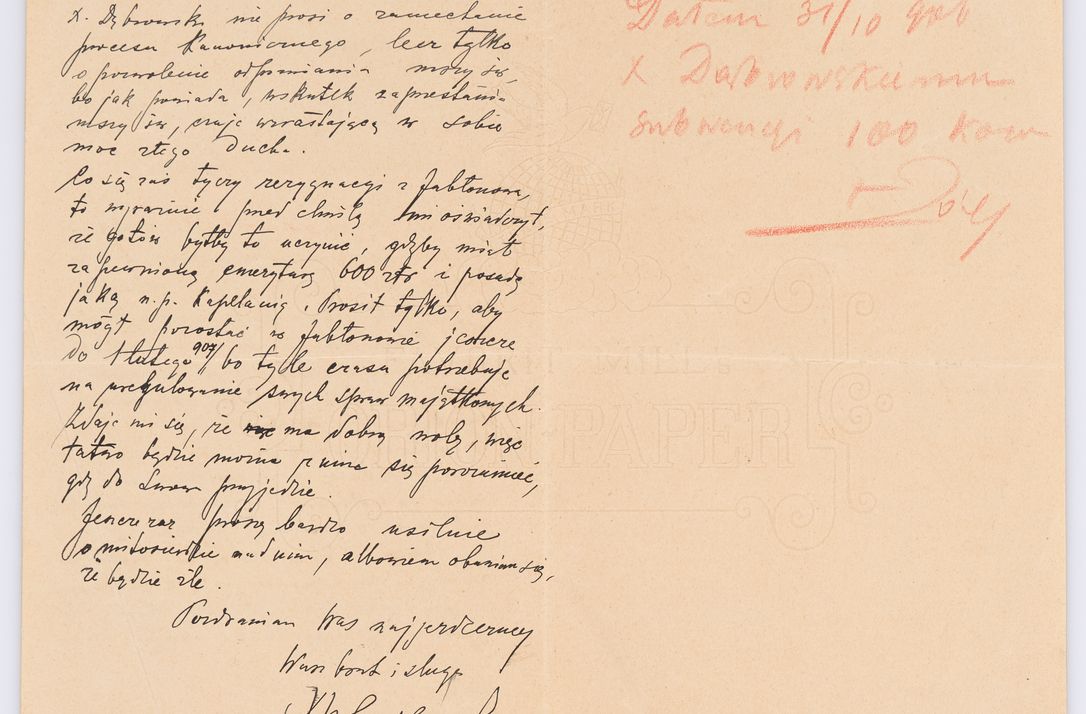 X. Dąbrowski nie prosi o zaniechanie
procesu Kanonicznego, lecz tylko
o pozwolenie odprawiania mszy św,
bo jak powiada, wskutek zaprzestania
mszy św, czuje wzrastającą w sobie
moc złego Ducha.
Co się zaś tyczy rezygnacyi z Jabłonowa,
to wyraźnie przed chwilą mi oświadczył,
że gotów byłby to uczynić, gdyby miał
zapewnioną emeryturę 600 złr i posadę
jaką n.p. Kapelanię. Prosił tylko, aby
mógł pozostać w Jabłonowie jeszcze
do 1 lutego 907/ bo tyle czasu potrzebuje
na uregulowanie swych spraw majątkowych.
Zdaje mi się, że ma dobrą wolę, więc
łatwo będzie można z nim się porozumieć,
gdy do Lwowa przyjedzie.
Jeszcze raz proszę bardzo usilnie
o miłosierdzie nad nim, albowiem obawiam się,
że będzie źle.
Pozdrawiam Was najserdeczniej
Wasz brat i sługa
Dałem 31/10 906
X Dąbrowskiemu
subwencyi 100 Kor
PAPER